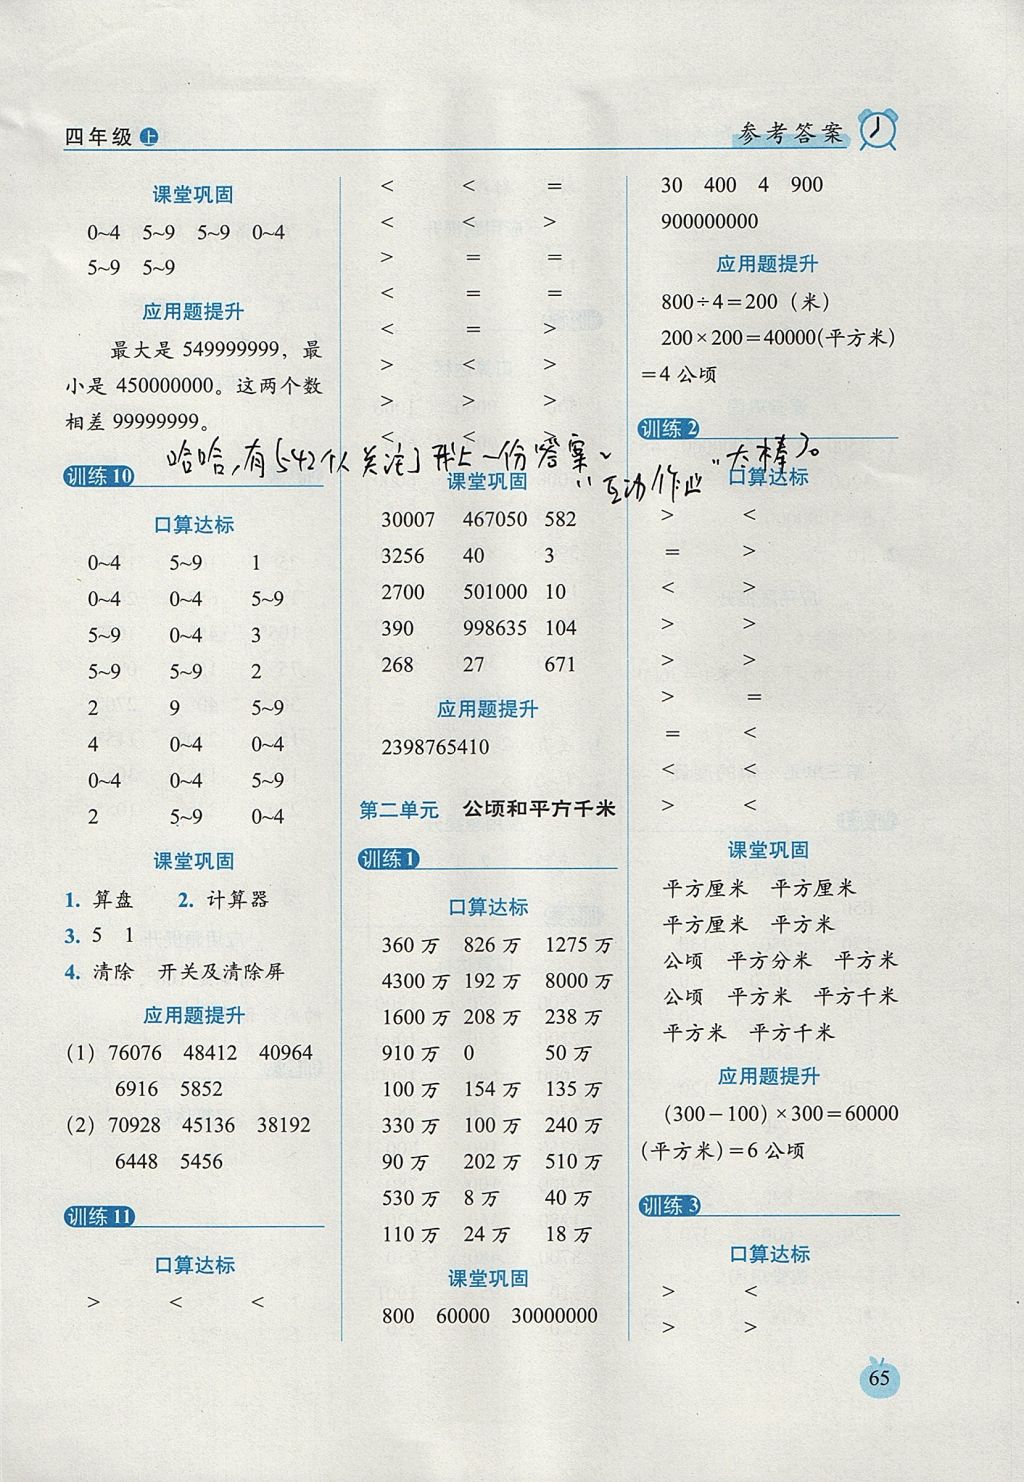 四年级 上
参考答案
课堂巩固
0~4 5~9 5~9 0~4
5~9 5~9
应用题提升
最大是 549999999，最
小是 450000000。这两个数
相差 99999999。
训练10
口算达标
0~4 5~9 1
0~4 0~4 5~9
5~9 0~4 3
5~9 5~9 2
2 9 5~9
4 0~4 0~4
0~4 0~4 5~9
2 5~9 0~4
课堂巩固
1. 算盘 2. 计算器
3. 5 1
4. 清除 开关及清除屏
应用题提升
(1) 76076 48412 40964
6916 5852
(2) 70928 45136 38192
6448 5456
训练11
口算达标
> < <
< < =
< < >
> = =
< = =
< = >
> < >
> > >
< < <
哈哈，有1542个人关注了我上一份答案、
"互动作业"太棒了。
课堂巩固
30007 467050 582
3256 40 3
2700 501000 10
390 998635 104
268 27 671
应用题提升
2398765410
第二单元 公顷和平方千米
训练1
口算达标
360万 826万 1275万
4300万 192万 8000万
1600万 208万 238万
910万 0 50万
100万 154万 135万
330万 100万 240万
90万 202万 510万
530万 8万 40万
110万 24万 18万
课堂巩固
800 60000 30000000
30 400 4 900
900000000
应用题提升
800÷4=200（米）
200×200=40000(平方米)
=4公顷
训练2
口算达标
> <
= >
< >
> >
> >
> =
= <
< <
> <
课堂巩固
平方厘米 平方厘米
平方厘米 平方米
公顷 平方分米 平方米
公顷 平方米 平方千米
平方米 平方千米
应用题提升
(300-100)×300=60000
(平方米)=6公顷
训练3
口算达标
> <
> >
65